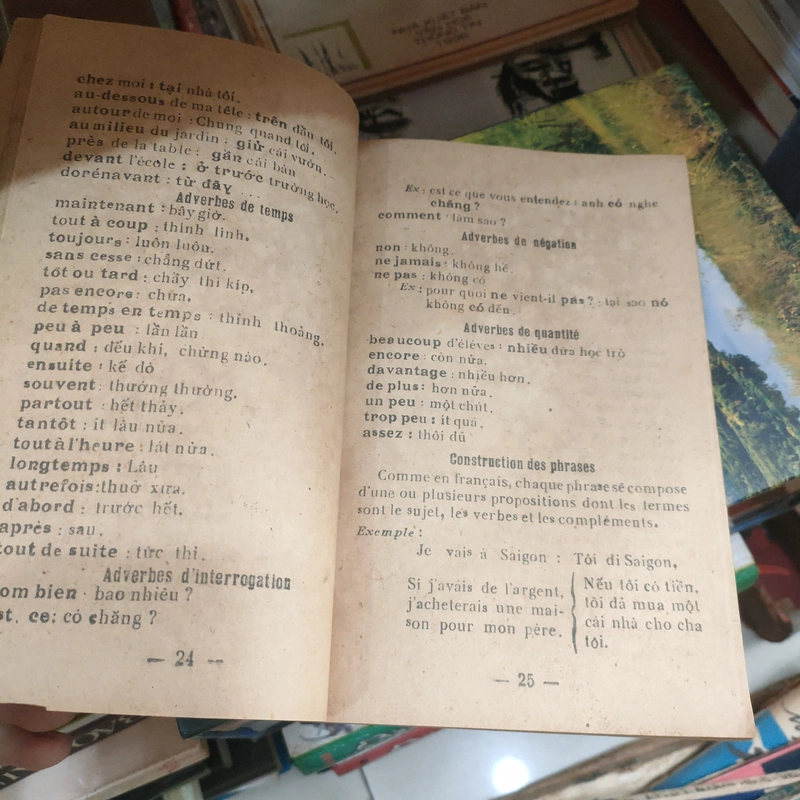 NHÀ XUẤT BẢN
chez moi : tại nhà tôi.
au-dessous de ma tête : trên đầu tôi.
autour de moi : Chung quanh tôi.
au milieu du jardin : giữ cái vườn.
près de la table : gần cái bàn
devant l'école : ở trước trường học.
dorénavant : từ đây ...
Adverbes de temps
maintenant : bây giờ.
tout à coup : thình lình.
toujours : luôn luôn.
sans cesse : chẳng dứt.
tôt ou tard : chầy thì kíp,
pas encore : chưa.
de temps en temps : thỉnh thoảng,
peu à peu : lần lần
quand : đều khi, chừng nào.
ensuite : kế đó
souvent : thường thường.
partout : hết thảy.
tantôt : ít lâu nữa.
tout à l'heure : lát nữa.
longtemps : Lâu
autrefois : thuở xưa.
d'abord : trước hết.
après : sau.
tout de suite : tức thì.
Adverbes d'interrogation
om bien : bao nhiêu ?
st. ce : có chăng ?
— 24 —
Ex : est ce que vous entendez : anh có nghe
chăng ?
comment : làm sao ?
Adverbes de négation
non : không.
ne jamais : không hề.
ne pas : không có
Ex : pour quoi ne vient-il pas ? : tại sao nó
không có đến.
Adverbes de quantité
beaucoup d'élèves : nhiều đứa học trò
encore : còn nữa.
davantage : nhiều hơn.
de plus : hơn nữa.
un peu : một chút.
trop peu : ít quá.
assez : thôi đủ
Construction des phrases
Comme en français, chaque phrase sé compose
d'une ou plusieurs propositions dont les termes
sont le sujet, les verbes et les compléments.
Exemple :
Je vais à Saigon : Tôi đi Saigon,
Si j'avais de l'argent,
j'acheterais une mai-
son pour mon père.
Nếu tôi có tiền,
tôi đả mua một
cái nhà cho cha
tôi.
— 25 —